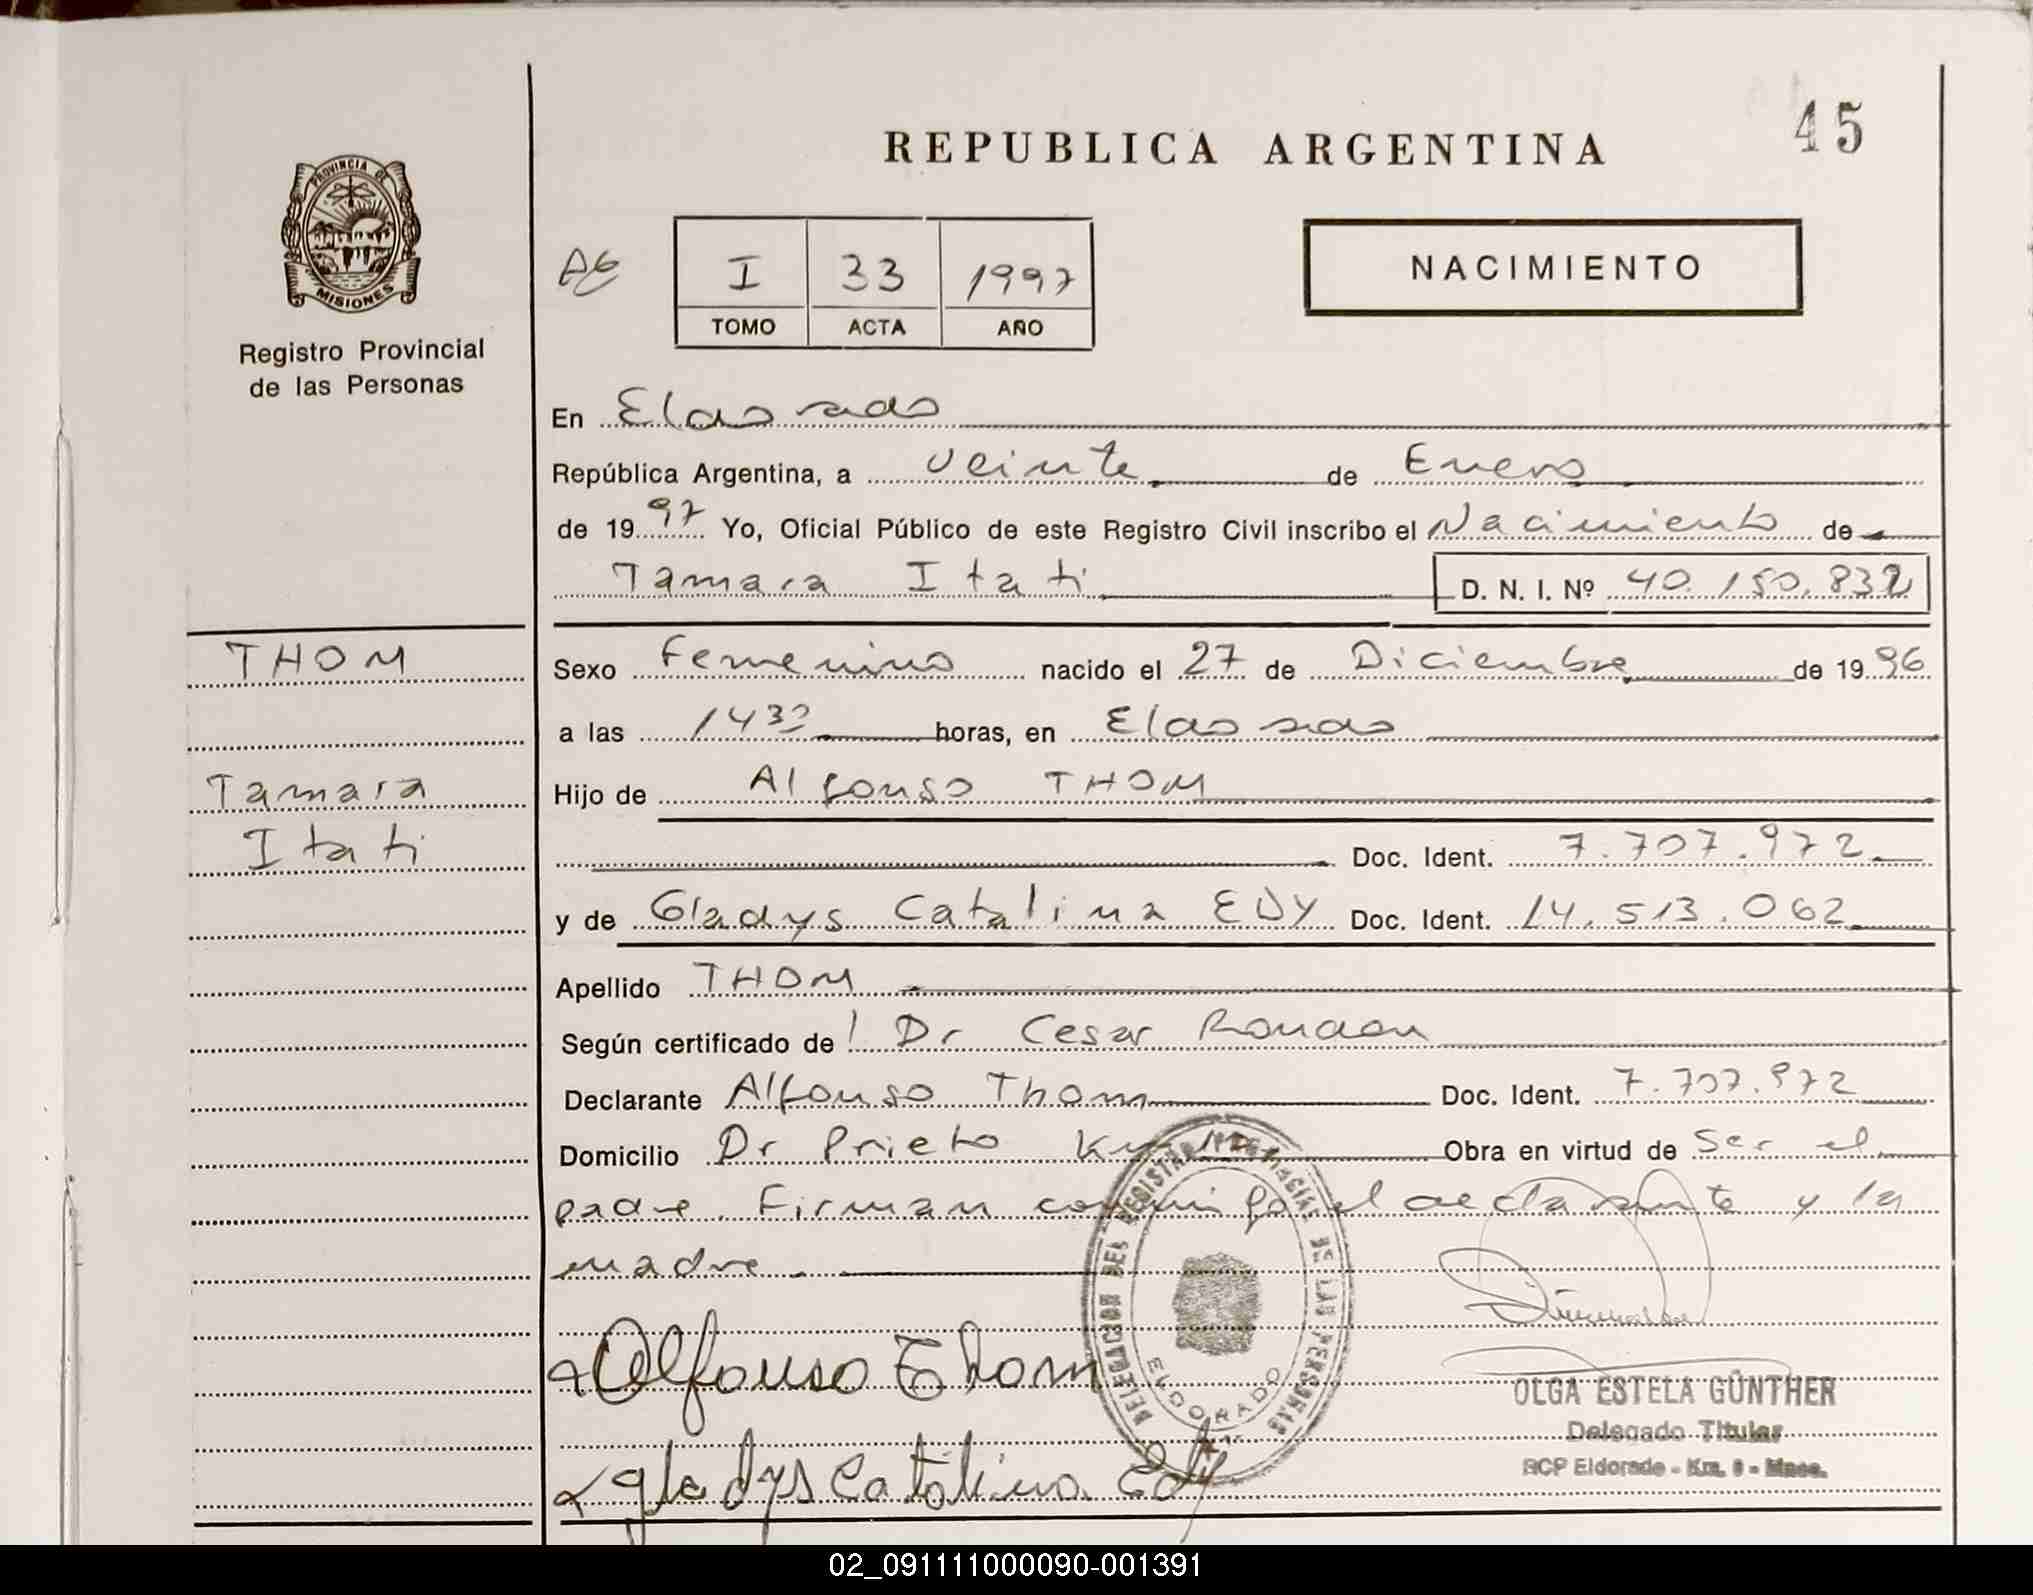 45
REPUBLICA ARGENTINA
PROVINCIA DE
MISIONES
Registro Provincial
de las Personas
I 33 1997
TOMO ACTA AÑO
NACIMIENTO
En Eldorado
República Argentina, a veinte de Enero
de 1997 Yo, Oficial Público de este Registro Civil inscribo el Nacimiento de
Tamara Itati D. N. I. Nº 40.150.832
THOM
Tamara
Itati
Sexo Femenino nacido el 27 de Diciembre de 1996
a las 1430 horas, en Eldorado
Hijo de Alfonso THOM
Doc. Ident. 7.707.972
y de Gladys Catalina EDY Doc. Ident. 14.513.062
Apellido THOM
Según certificado de Dr Cesar
Declarante Alfonso Thom Doc. Ident. 7.707.972
Domicilio Dr Prieto Km Obra en virtud de Ser el
padre. Firman conmigo el declarante y la
madre.
DELEGACION DEL REGISTRO PROVINCIAL DE LAS PERSONAS
ELDORADO
Alfonso Thom
Gladys Catalina Edy
OLGA ESTELA GÜNTHER
Delegado Titular
RCP Eldorado - Km. 9 - Mnes.
02_091111000090-001391